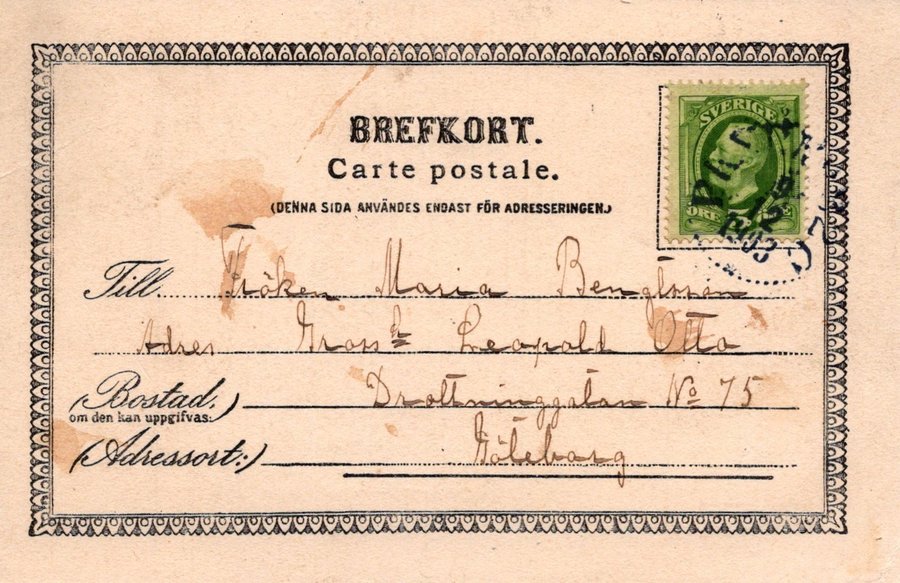 BREFKORT.
Carte postale.
(DENNA SIDA ANVÄNDES ENDAST FÖR ADRESSERINGEN.)
SVERIGE
ÖRE
1903
Till Fröken Maria Bengtsson
Adres Gross Leopold Otto
(Bostad,) Drottninggatan No 75
om den kan uppgifvas:
(Adressort:) Göteborg